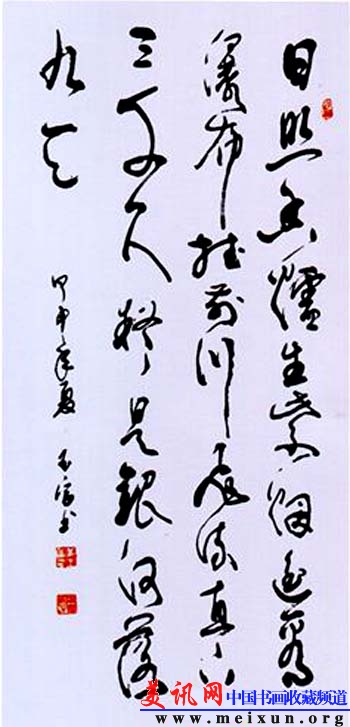 日照香爐生紫烟遥看
瀑布挂前川飛流直下
三千尺疑是銀河落
九天
甲申年夏
美讯网 中国书画收藏频道
www.meixun.org